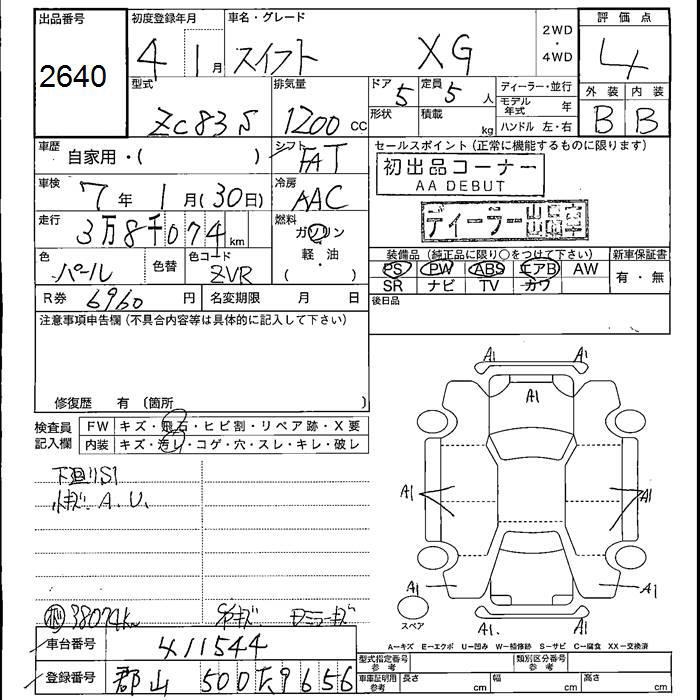 出品番号 2640
初度登録年月 4 1月
車名・グレード スイフト XG
2WD・4WD
評価点 4
型式 ZC83S
排気量 1200 cc
ドア 5 形状
定員 5 人 積載 kg
ディーラー・並行
モデル年式 年
ハンドル 左・右
外装 内装
B B
車歴 自家用・( )
シフト FAT
セールスポイント(正常に機能するものに限ります)
初出品コーナー
AA DEBUT
車検 7年1月(30日)
冷房 AAC
走行 3万8千074 km
燃料 ガソリン・軽・油 ( )
色 パール 色替
色コード ZVR
装備品(純正品に限り○をつけて下さい)
新車保証書
PS PW ABS エアB AW
有・無
SR ナビ TV カワ
R券 6960 円 名変期限 月 日
後日品
注意事項申告欄(不具合内容等は具体的に記入して下さい)
修復歴 有〔箇所 〕
検査員記入欄
FW キズ・飛石・ヒビ割・リペア跡・X要
内装 キズ・汚レ・コゲ・穴・スレ・キレ・破レ
下廻りS1
A.U.
A1 A1
A1
A1 A1
A1 A1
A1. A1
スペア
38074km
車台番号 411544
登録番号 郡山 500 9656
A=キズ E=エクボ U=凹み W=補修跡 S=サビ C=腐食 XX=交換済
型式指定番号 参考 類別区分番号 参考
車庫証明用参考 長さ cm 幅 cm 高さ cm